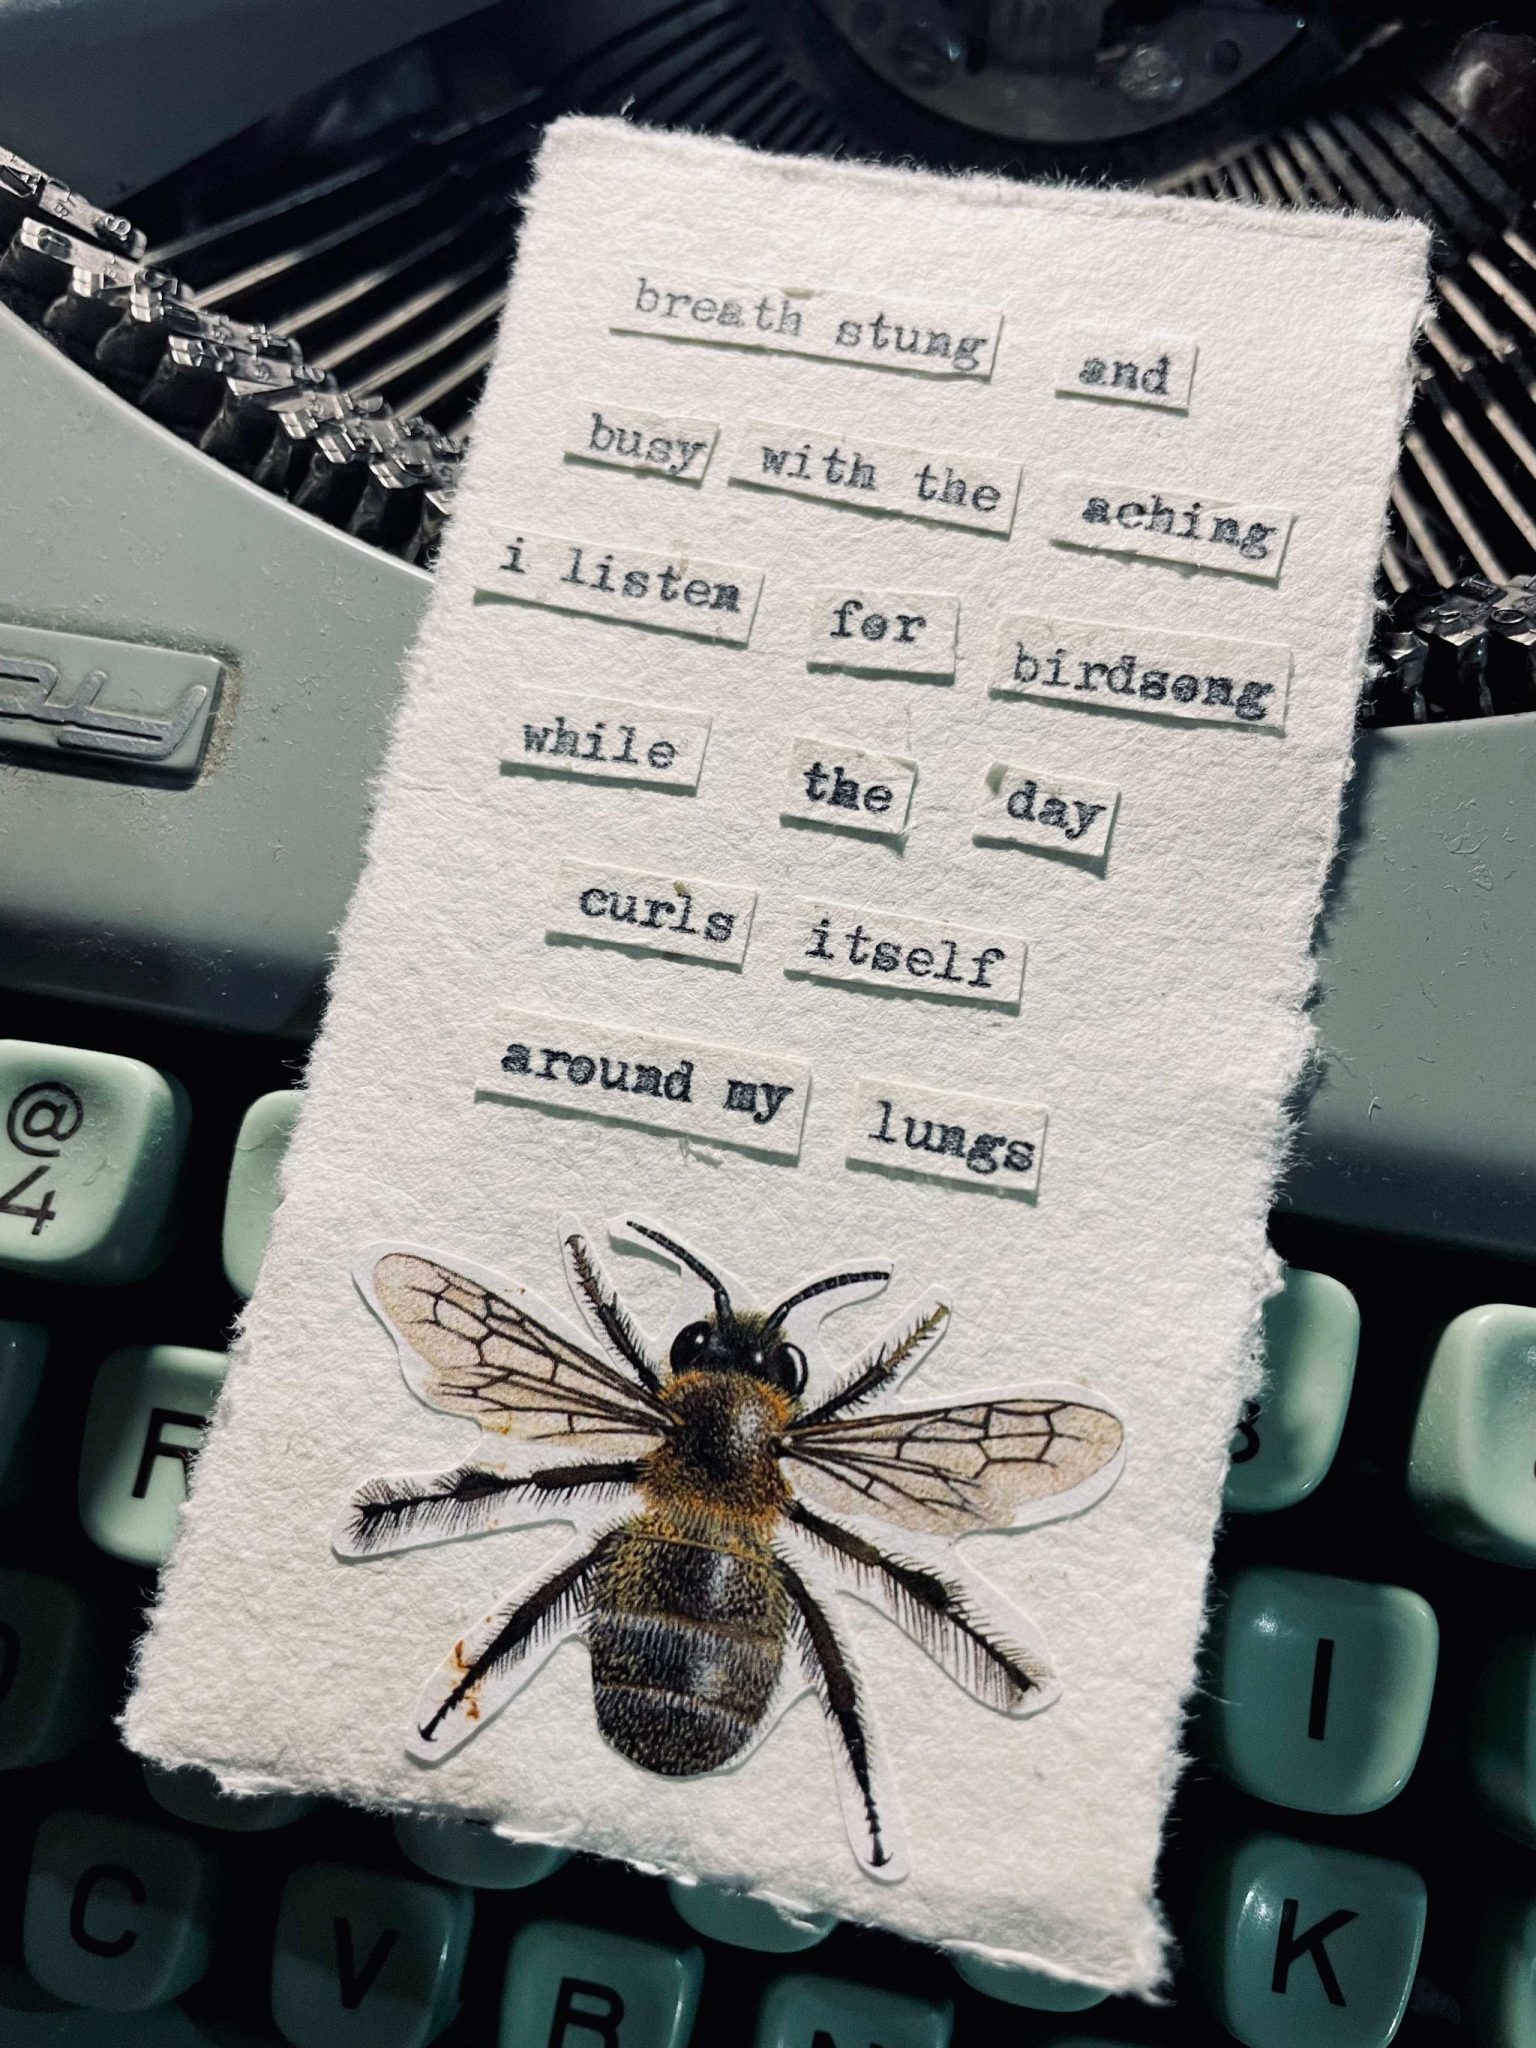 breath stung and
busy with the aching
i listen for birdsong
while the day
curls itself
around my lungs
@
4
R
I
C
V
B
K